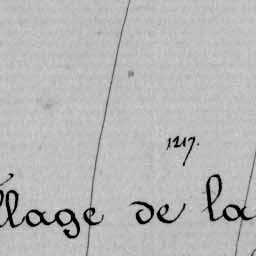 1217.
llage de la